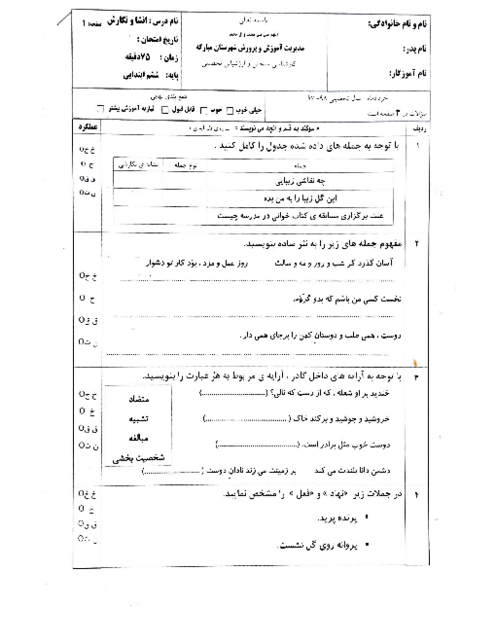 نام و نام خانوادگی:
نام پدر:
نام آموزگار:
باسمه تعالی
مدیریت آموزش و پرورش شهرستان مبارکه
نام درس : انشا و نگارش صفحه: ۱
تاریخ امتحان :
زمان : ۷۵دقیقه
پایه: ششم ابتدایی
سؤالات در ۳ صفحه است
خیلی خوب خوب قابل قبول نیازبه آموزش بیشتر
ردیف
عملکرد
۱ با توجه به جمله های داده شده جدول را کامل کنید .
جمله نوع جمله نشانه ی نگارشی
چه نقاشی زیبایی
این گل زیبا را به من بده
علت برگزاری مسابقه ی کتاب خوانی در مدرسه چیست
۲ مفهوم جمله های زیر را به نثر ساده بنویسید.
آسان گذرد گر شب و روز و مه و سالت روز عمل و مزد ، بود کار تو دشوار
نخست کسی من باشم که بدو گروم.
دوست ، همی طلب و دوستان کهن را برجای همی دار .
۳ با توجه به آرایه های داخل کادر ، آرایه ی مربوط به هر عبارت را بنویسید.
خندید بر او شعله ، که از دست که نالی؟ (..............................)
خروشید و جوشید و برکند خاک (..............................)
دوست خوب مثل برادر است. (..............................)
دشمن دانا بلندت می کند بر زمینت می زند نادان دوست (..............................)
متضاد
تشبیه
مبالغه
شخصیت بخشی
۴ در جملات زیر «نهاد » و «فعل » را مشخص نمایید.
• پرنده پرید.
• پروانه روی گل نشست.